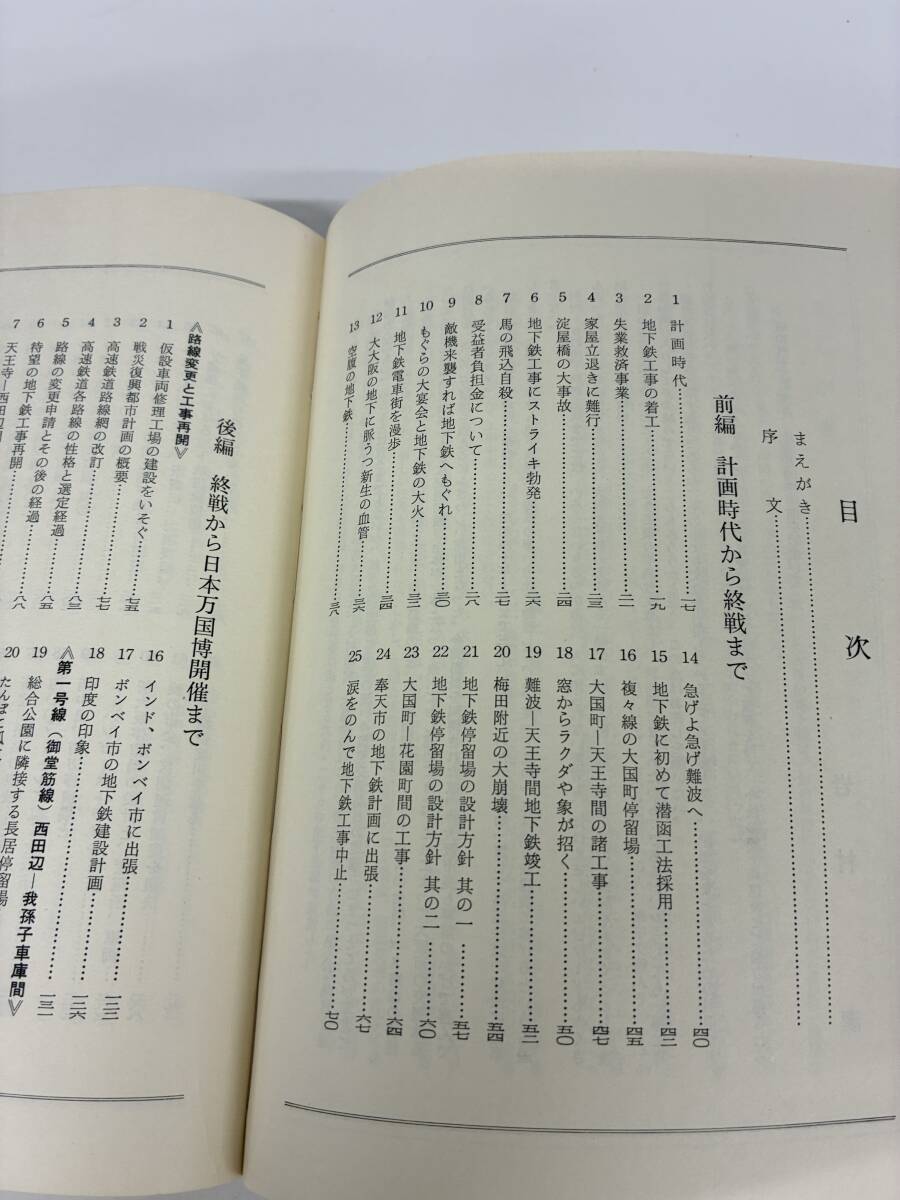 目次
まえがき
序文
前編 計画時代から終戦まで
1 計画時代 一七
2 地下鉄工事の着工 一九
3 失業救済事業 二一
4 家屋立退きに難行 二三
5 淀屋橋の大事故 二四
6 地下鉄工事にストライキ勃発 二六
7 馬の飛込自殺 二七
8 受益者負担金について 二八
9 敵機来襲すれば地下鉄へもぐれ 三〇
10 もぐらの大宴会と地下鉄の大火 三二
11 地下鉄電車街を漫歩 三四
12 大大阪の地下に脈うつ新生の血管 三六
13 空腹の地下鉄 三八
14 急げよ急げ難波へ 四〇
15 地下鉄に初めて潜函工法採用 四二
16 複々線の大国町停留場 四五
17 大国町―天王寺間の諸工事 四七
18 窓からラクダや象が招く 五〇
19 難波―天王寺間地下鉄竣工 五二
20 梅田附近の大崩壊 五四
21 地下鉄停留場の設計方針 其の一 五七
22 地下鉄停留場の設計方針 其の二 六〇
23 大国町―花園町間の工事 六四
24 奉天市の地下鉄計画に出張 六七
25 涙をのんで地下鉄工事中止 七〇
後編 終戦から日本万国博開催まで
《路線変更と工事再開》
1 仮設車両修理工場の建設をいそぐ 七五
2 戦災復興都市計画の概要 七七
3 高速鉄道路線網の改訂
4 高速鉄道各路線の性格と選定経過 八三
5 路線の変更申請とその後の経過 八五
6 待望の地下鉄工事再開 八八
7 天王寺―西田辺間
16 インド、ボンベイ市に出張
17 ボンベイ市の地下鉄建設計画 一二三
18 印度の印象 一二六
《第一号線(御堂筋線)西田辺―我孫子車庫間》
19 総合公園に隣接する長居停留場 一三一
20